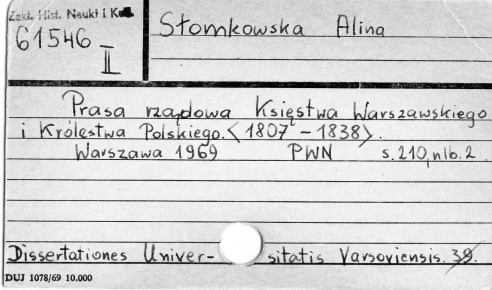 Zakł. Hist. Nauki i
61546
II
Słomkowska Alina
Prasa rządowa Księstwa Warszawskiego
i Królestwa Polskiego. <1807 - 1838>.
Warszawa 1969 PWN s. 210, nlb. 2
Dissertationes Univer- sitatis Varsoviensis. 39.
DUJ 1078/69 10.000